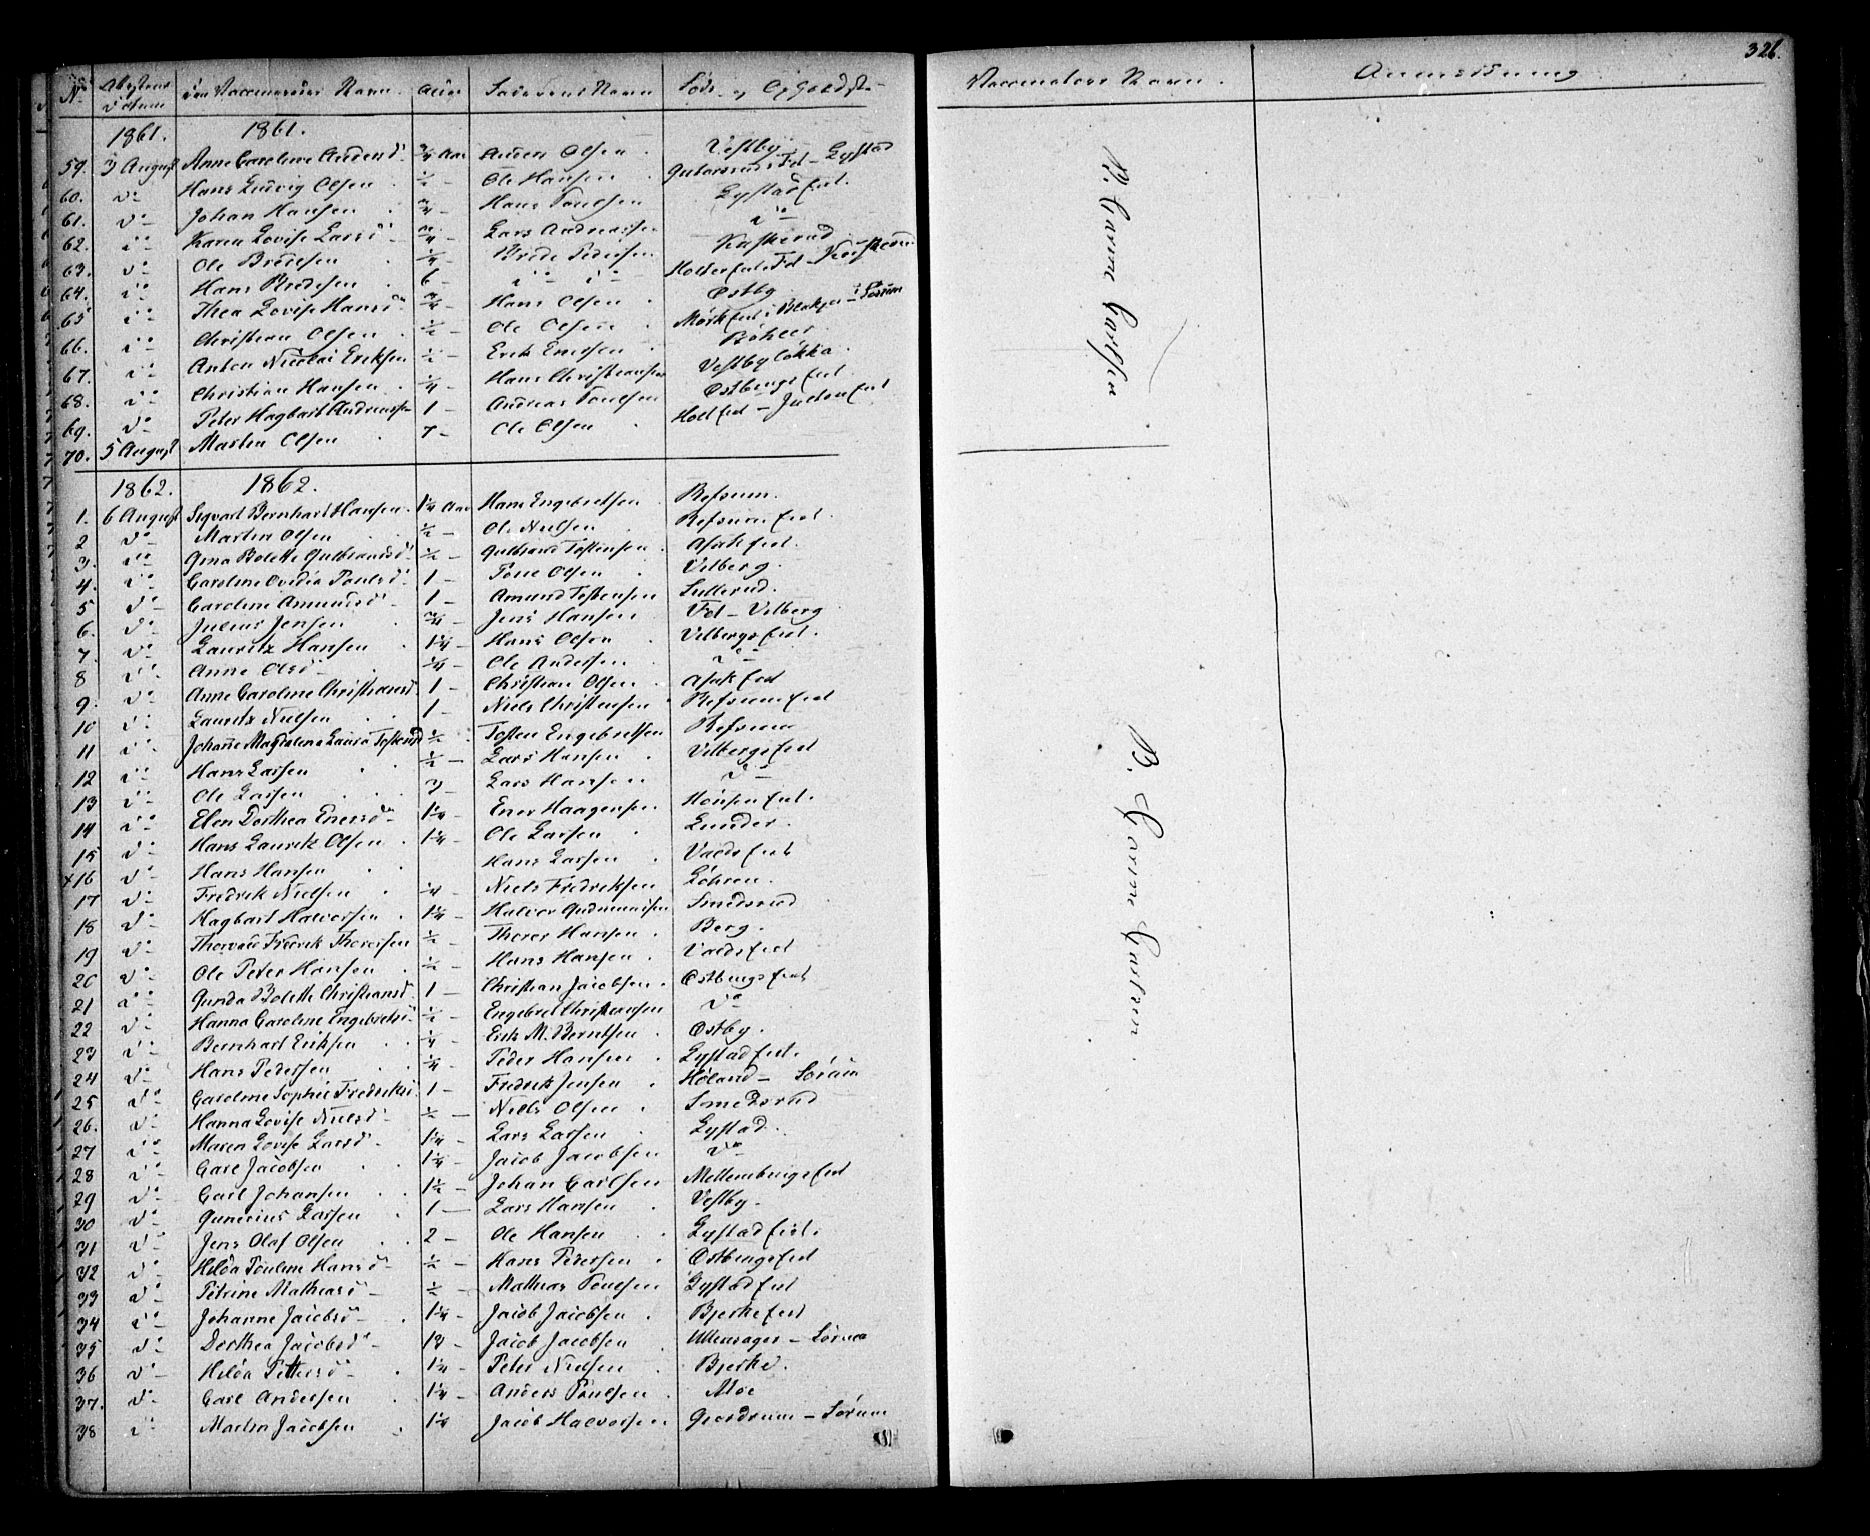 326.
No Attestens Datum Den Vaccineredes Navn. Alder Faderens Navn Føde- og Opholdst.- Vaccinateurs Navn. Anmærkning
1861. 1861.
59. 3 August Anne Caroline Andersd. 3/4 Aar Anders Olsen Vestby
60. do Hans Ludvig Olsen 1/2 - Ole Hansen Fd - Gystad
61. do Johan Hansen 3/4 - Hans Poulsen Gystad Eid.
62. do Karen Lovise Larsd. 3/4 - Lars Andreasen do
63. do Ole Bredesen 1/4 - Brede Pedersen
64. do Hans Bredesen 6 - do do
65 do Thea Lovise Hansd. 3/4 - Hans Olsen Østby
66. do Christian Olsen 1/2 - Ole Olsen Mørk Eid i Blakjer - Sørum
67. do Anton Nicolai Eriksen 1/2 - Erik Bøhler
68. do Christian Hansen 1/4 - Hans Christiansen Vestby løkka
69. do Peter Hagbart Andreassen 1 - Andreas Poulsen Østbyngs Eid
70. 5 August Martin Olsen 7 - Ole Olsen Holt Eid -
1862. 1862.
1. 6 August Sigvart Bernhart Hansen 1 1/4 Aar Hans Engebretsen Refsum.
2 do Martin Olsen 1/2 - Ole Nielsen Refsum Eid.
3. do Gina Bolette Gulbrandsd. 1/2 - Gulbrand Tostensen Asak Eid.
4. do Caroline Ovidia Poulsd. 1 - Poul Olsen Vilberg.
5 do Caroline Amundsd. 1 - Amund Tostensen Sullerud.
6. do Julius Jensen 3/4 - Jens Hansen Fd - Vilberg
7. do Lauritz Hansen 1 1/4 - Hans Olsen Vilbergs Eid.
8 do Anne Olsd. 1/4 - Ole Andersen do
9. do Anne Caroline Christiansd. 1 - Christian Olsen Asak Eid
10 do Lauritz Nielsen 1 - Niels Christensen Refsum Eid
11 do Johanne Magdalena Laura Tostensd. 1/2 - Tosten Engebretsen Refsum
12 do Hans Larsen 1/2 - Lars Hansen Vilbergs Eid
13 do Ole Larsen 3 - Lars Hansen do
14 do Elen Dorthea Enersd. 1 1/4 - Ener Haagensen Hønsen Eid.
15 do Hans Lauritz Olsen 1 1/4 - Ole Larsen Lunder.
+16 do Hans Hansen Hans Larsen Valds Eid
17 do Fredrik Nielsen 1/4 - Niels Fredriksen Løhren.
18 do Hagbart Halvorsen 1 1/4 - Halvor Gudmundsen Smedsrud
19 do Thorvald Fredrik Thoresen 1/2 - Thorer Hansen Berg.
20 do Ole Peter Hansen 1/2 - Hans Hansen Valds Eid
21 do Gunda Bolette Christiansd. 1 - Christian Jacobsen Østbyngs Eid
22 do Hanna Caroline Engebretsd. 1/2 - Engebret Christiansen do
23 do Bernhart Eriksen 1/4 - Erik M. Berntsen Østby.
24 do Hans Pedersen 1/4 - Peder Hansen Gystad Eid.
25 do Caroline Sophie Fredriksd. 1 - Fredrik Jensen Høland - Sørum
26. do Hanna Lovise Nielsd. 1/2 - Niels Olsen Smedsrud
27 do Maren Lovise Larsd. 1 1/4 - Lars Larsen Gystad.
28 do Carl Jacobsen 1 1/4 - Jacob Jacobsen do
29 do Carl Johansen 1 1/2 - Johan Carlsen Mellembyngs Eid
30 do Gunerius Larsen 1 - Lars Hansen Vestby.
31 do Jens Olaf Olsen 2 - Ole Hansen Gystad Eid.
32 do Hilda Pouline Hansd. 1/2 - Hans Pedersen Østbyngs Eid
33 do Petrine Mathiasd. 1/2 - Mathias Poulsen Gystad Eid
34 do Johanne Jacobsd. 1 1/4 - Jacob Jacobsen Bjerke Eid
35 do Dorthea Jacobsd. 13 - Jacob Jacobsen Ullensager - Sørum
36 do Hilda Pettersd. 1 1/4 - Peter Nielsen Bjerke.
37. do Carl Andersen 1 1/4 - Anders Poulsen Moe
38 do Martin Jacobsen 1 1/4 Jacob Halvorsen Gjerdrum - Sørum
B. Garine Carlsen
B. Garine Carlsen